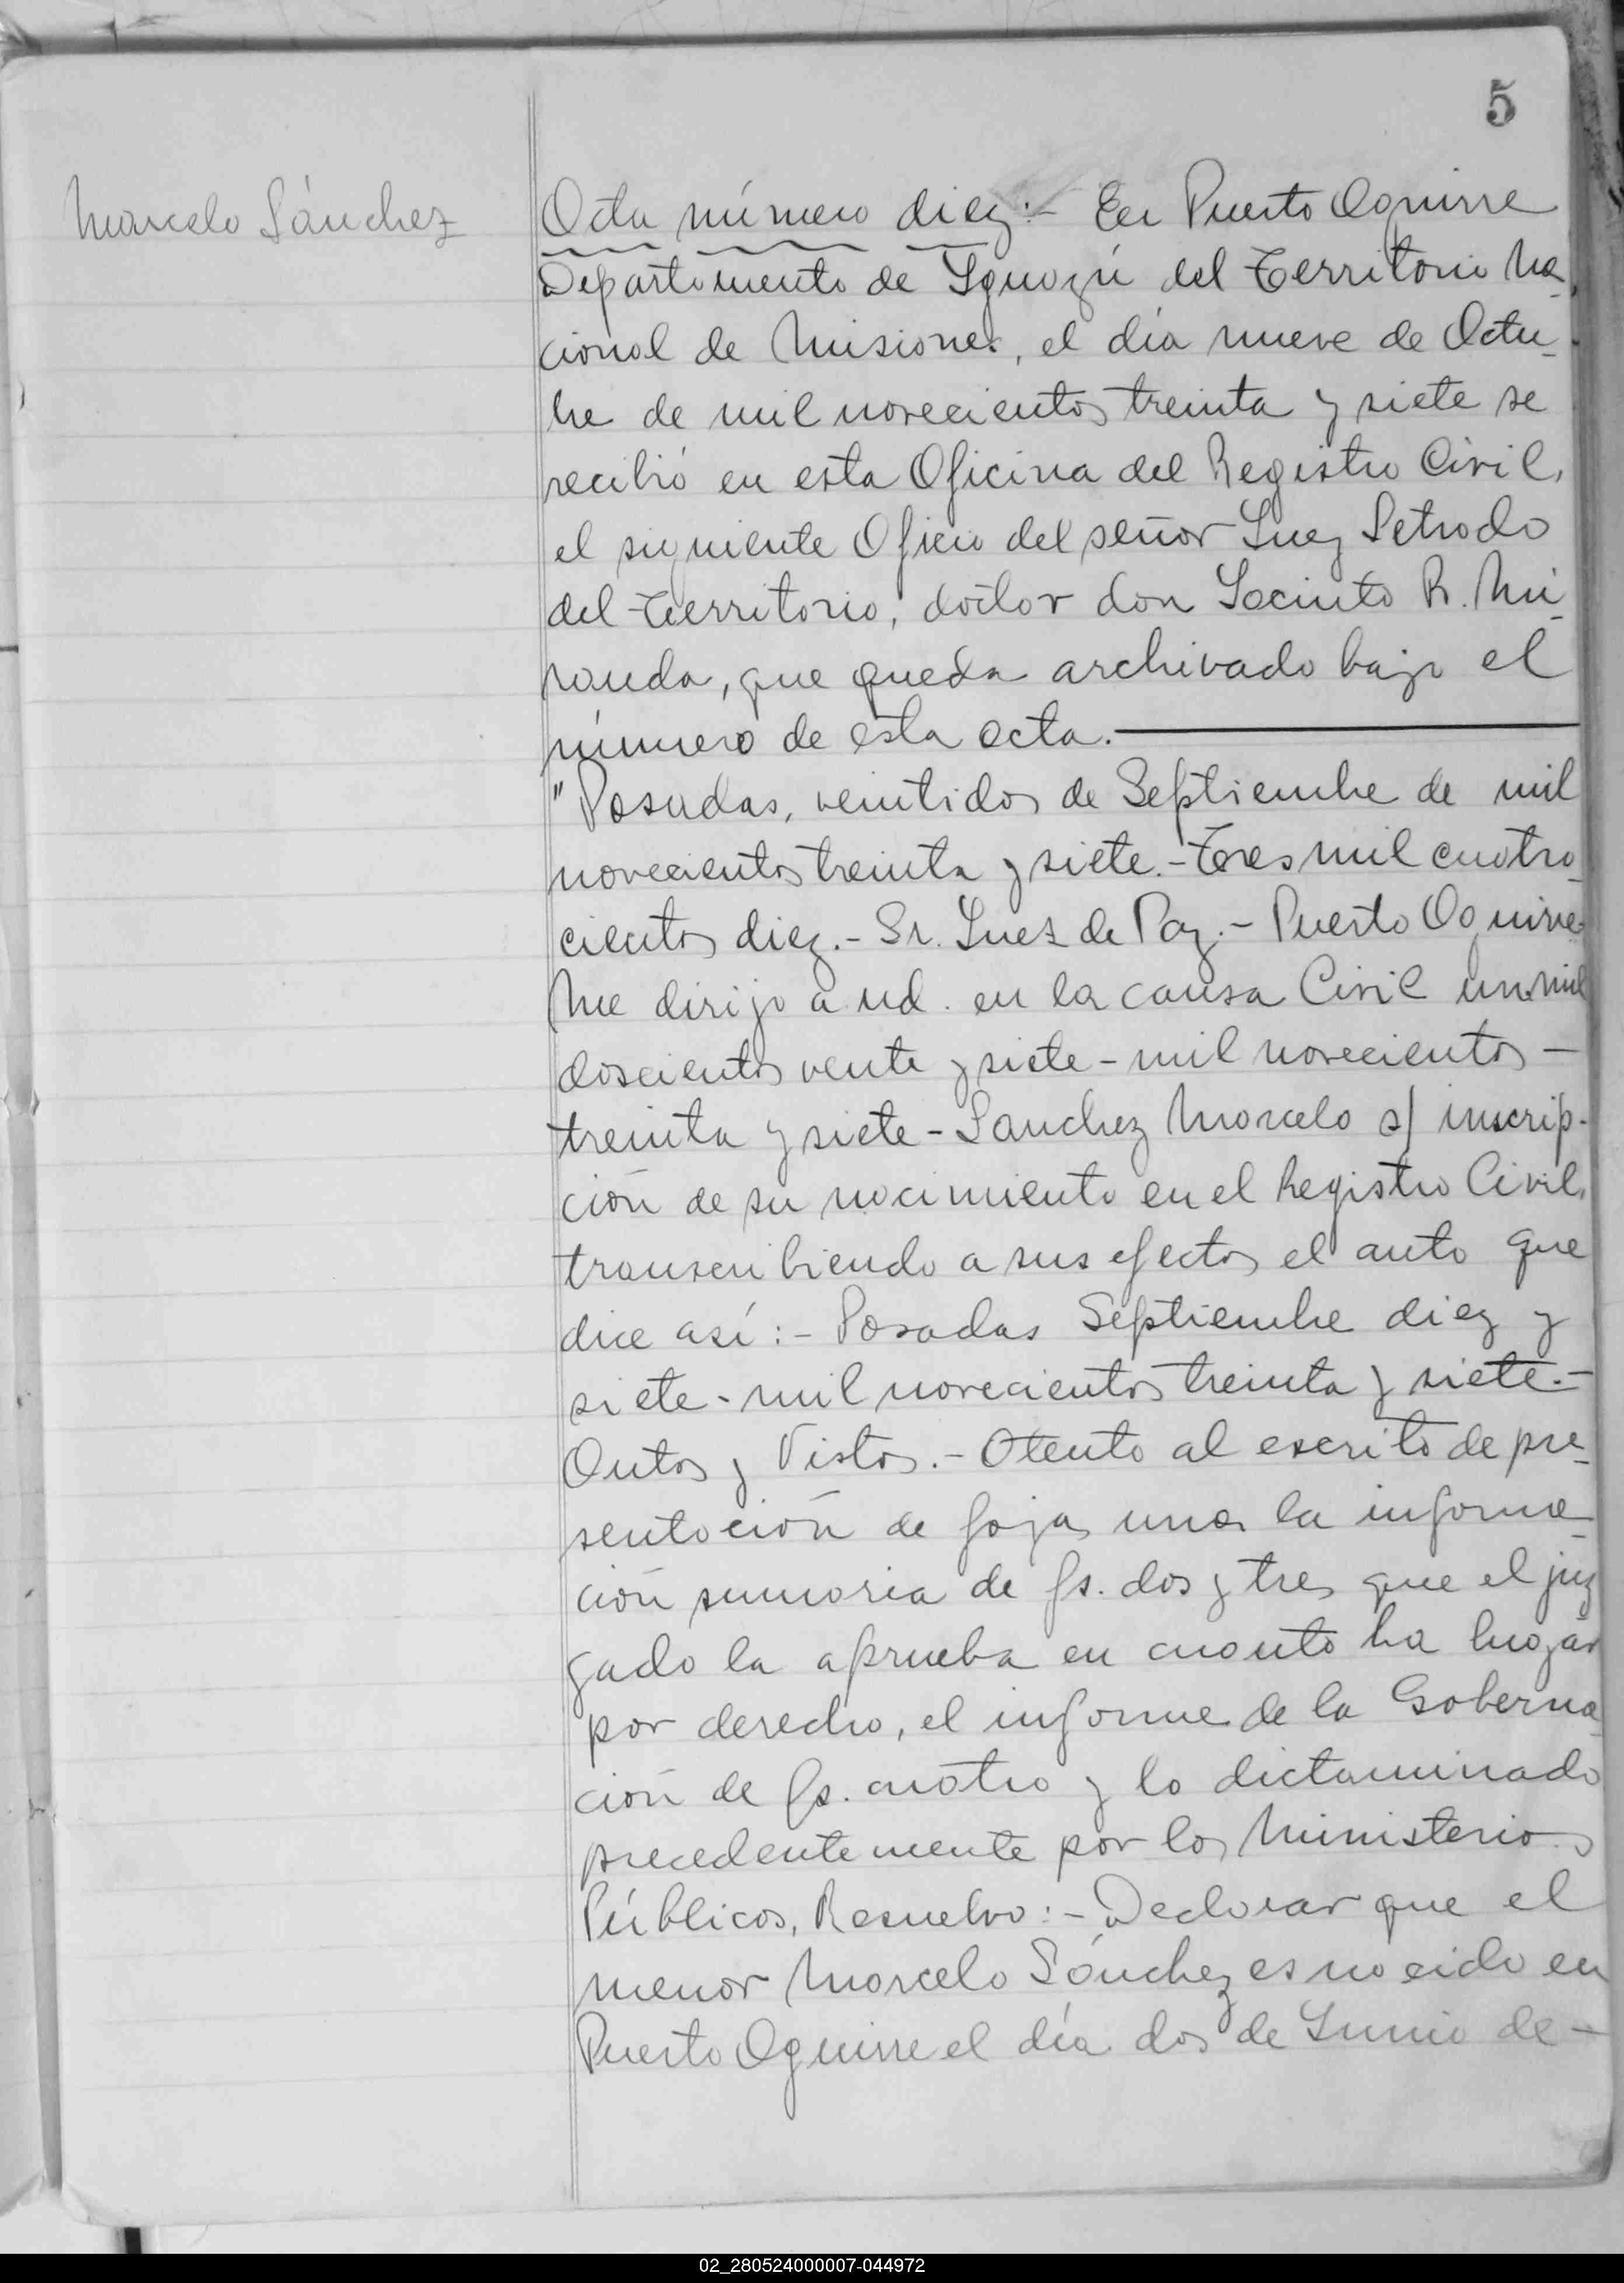 5
Marcelo Sánchez
Acta número diez:- En Puerto Aguirre
Departamento de Iguazú del Territorio Na-
cional de Misiones, el día nueve de Octu-
bre de mil novecientos treinta y siete se
recibió en esta Oficina del Registro Civil,
el siguiente Oficio del señor Juez Letrado
del Territorio, doctor don Jacinto R. Mi-
randa, que queda archivado bajo el
número de esta acta.—
"Posadas, veintidos de Septiembre de mil
novecientos treinta y siete.- Tres mil cuatro-
cientos diez.- Sr. Juez de Paz.- Puerto Aguirre.
Me dirijo a ud. en la causa Civil un mil
doscientos vente y siete - mil novecientos -
treinta y siete - Sanchez Marcelo s/ inscrip-
ción de su nacimiento en el Registro Civil,
transcribiendo a sus efectos el auto que
dice así:- Posadas Septiembre diez y
siete - mil novecientos treinta y siete.-
Autos y Vistos.- Atento al escrito de pre-
sentación de fojas una la informa-
ción sumaria de fs. dos y tres que el juz
gado la aprueba en cuanto ha lugar
por derecho, el informe de la Goberna-
ción de fs. cuatro y lo dictaminado
precedentemente por los Ministerios
Públicos, Resuelvo:- Declarar que el
menor Marcelo Sánchez es nacido en
Puerto Aguirre el día dos de Junio de -
02_280524000007-044972